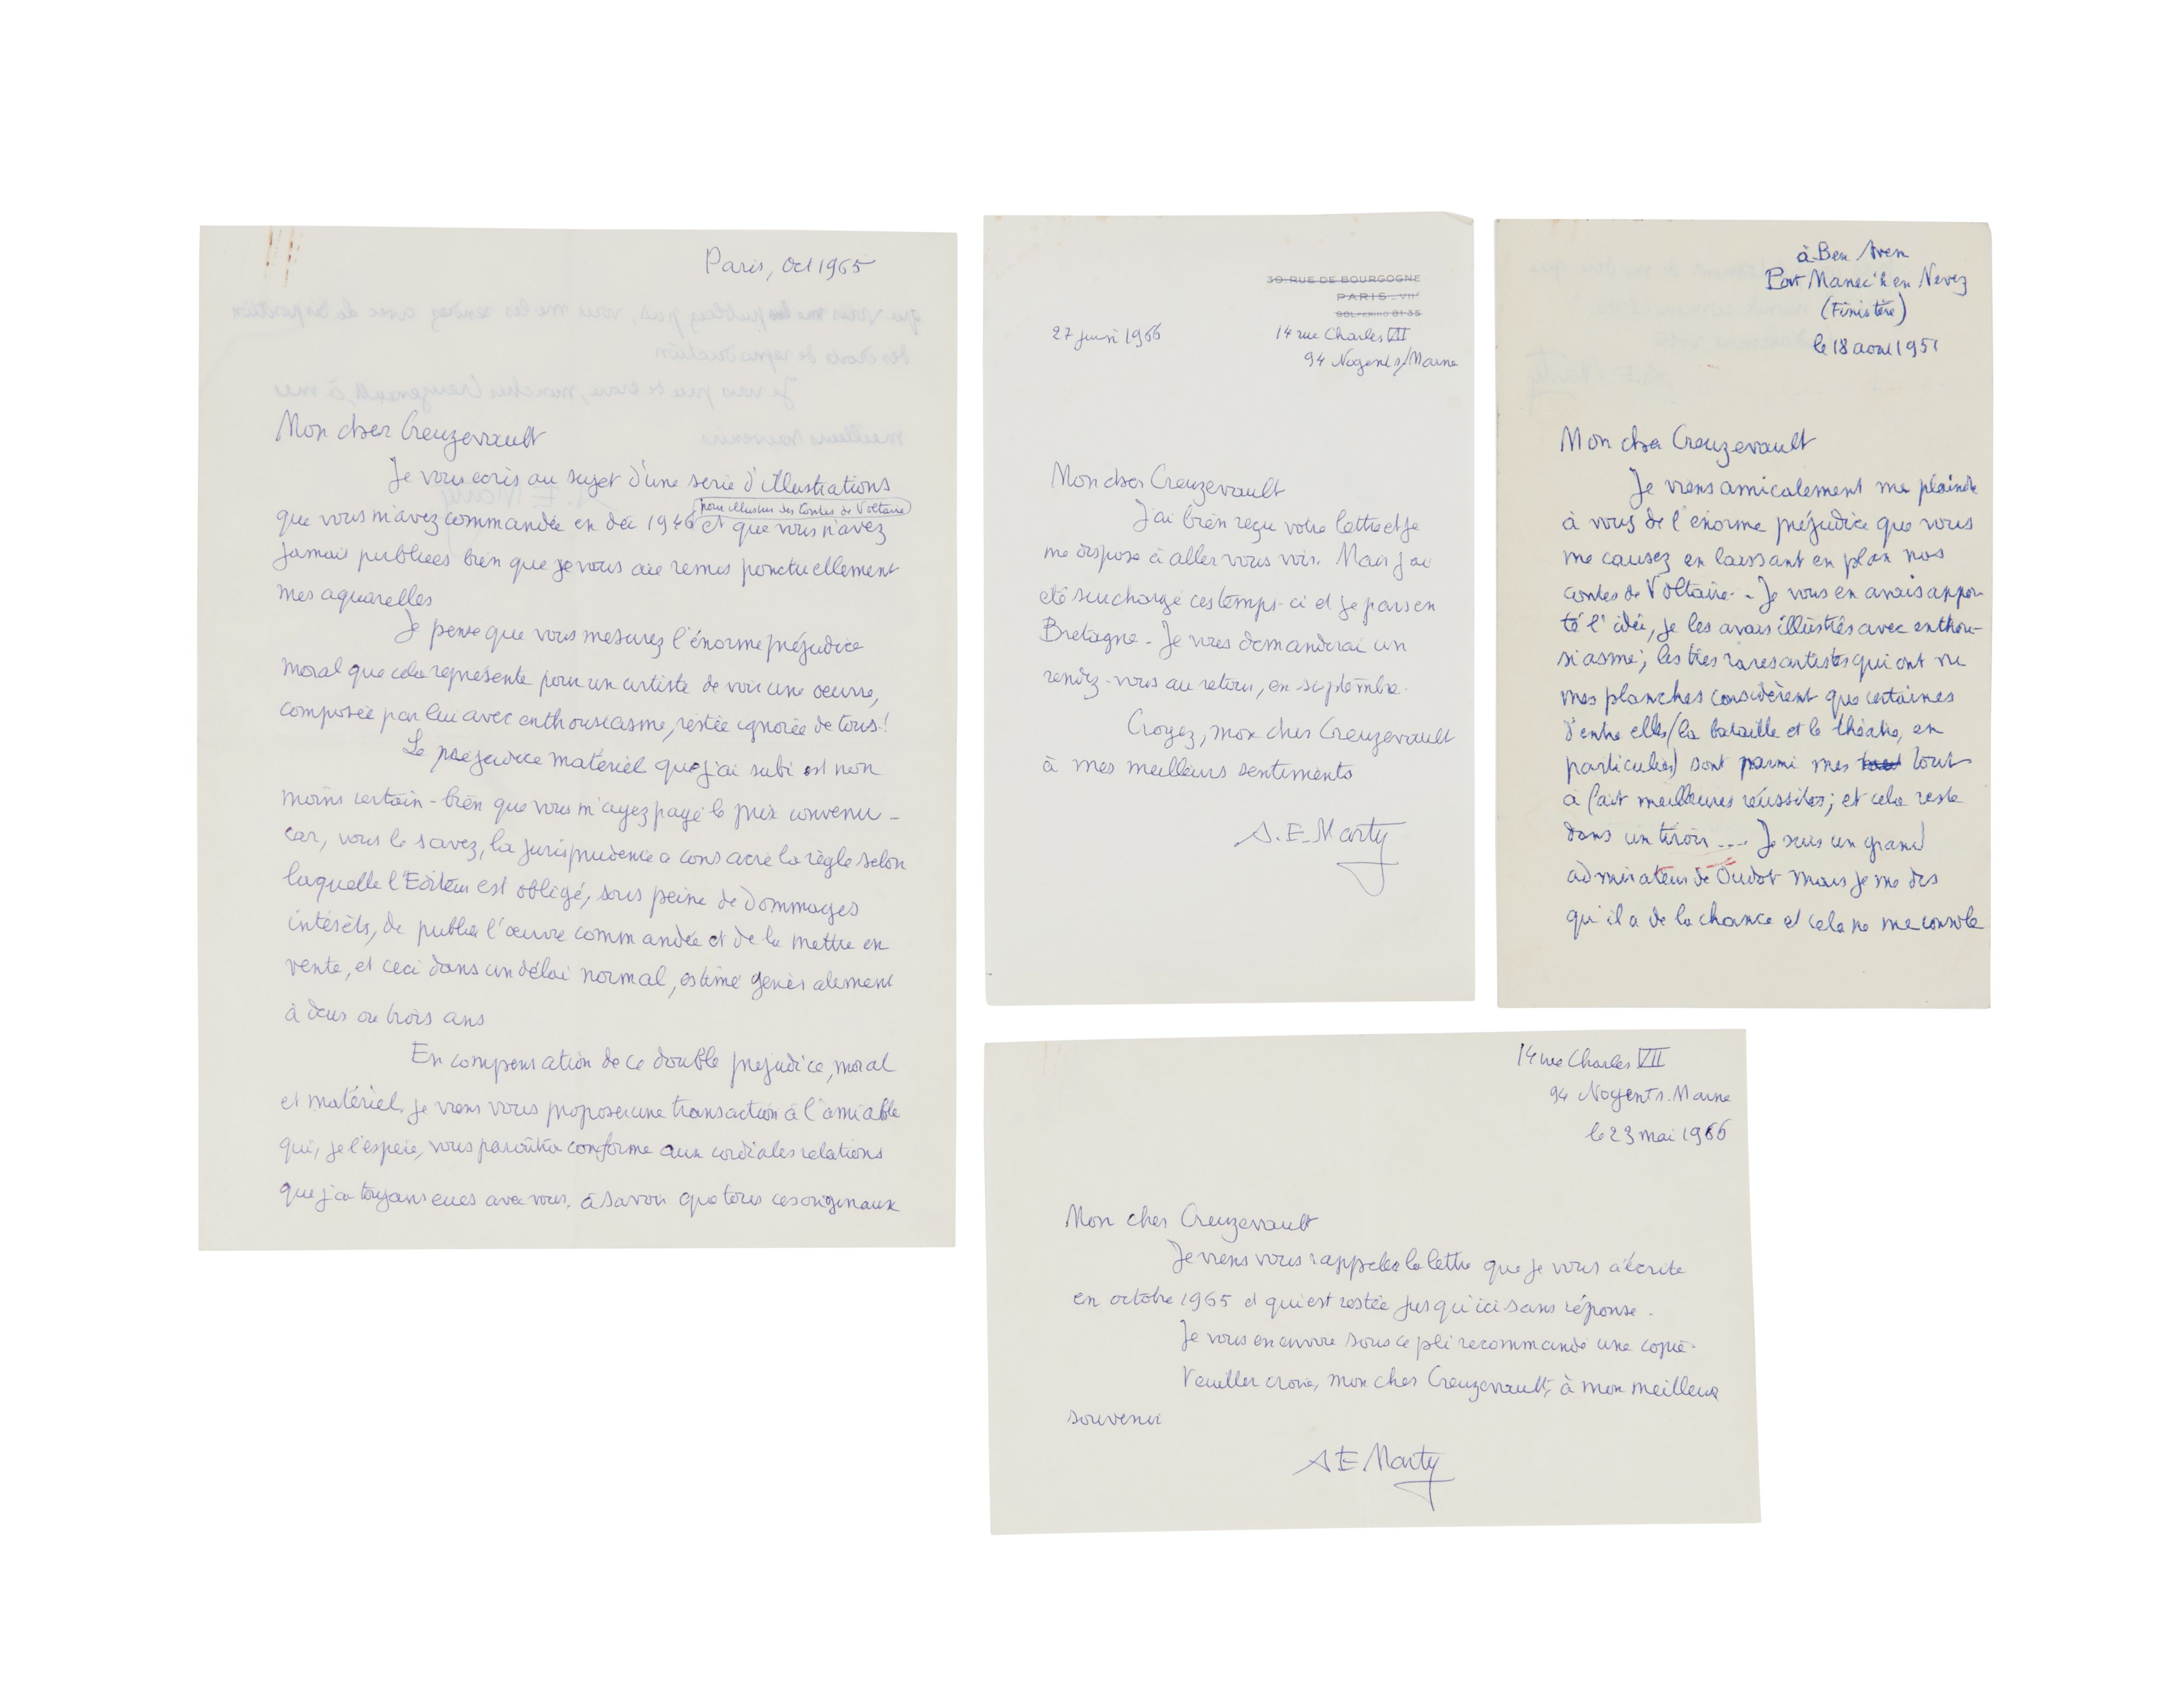 Paris, Oct 1965
Mon cher Creuzevault
Je vous ecris au sujet d'une serie d'illustrations
pour illustrer des Contes de Voltaire
que vous m'avez commandée en déc 1946 et que vous n'avez
jamais publiées bien que je vous aie remis ponctuellement
mes aquarelles
Je pense que vous mesurez l'énorme préjudice
moral que cela représente pour un artiste de voir une œuvre,
composée par lui avec enthousiasme, restée ignorée de tous!
Le préjudice matériel que j'ai subi est non
moins certain - bien que vous m'ayez payé le prix convenu -
car, vous le savez, la jurisprudence a consacré la règle selon
laquelle l'Editeur est obligé, sous peine de dommages
intérêts, de publier l'œuvre commandée et de la mettre en
vente, et ceci dans un délai normal, estimé généralement
à deux ou trois ans
En compensation de ce double préjudice, moral
et matériel, je viens vous proposer une transaction à l'amiable
qui, je l'espère, vous paraîtra conforme aux cordiales relations
que j'ai toujours eues avec vous. à savoir que tous ces originaux
30. RUE DE BOURGOGNE
PARIS - VIIᵉ
SOLFERINO 81-35
27 juin 1966
14 rue Charles VII
94 Nogent s/Marne
Mon cher Creuzevault
J'ai bien reçu votre lettre et je
me dispose à aller vous voir. Mais j'ai
été surchargé ces temps-ci et je pars en
Bretagne. Je vous demanderai un
rendez-vous au retour, en septembre.
Croyez, mon cher Creuzevault
à mes meilleurs sentiments
A. E. Marty
à Ben Aven
Port Manec'h en Nevez
(Finistère)
le 18 aout 1951
Mon cher Creuzevault
Je viens amicalement me plaindre
à vous de l'énorme préjudice que vous
me causez en laissant en plan nos
contes de Voltaire. - Je vous en avais appor-
té l'idée, je les avais illustrés avec enthou-
siasme; les très rares artistes qui ont vu
mes planches considèrent que certaines
d'entre elles (la bataille et le théâtre, en
particulier) sont parmi mes tout
à fait meilleures réussites; et cela reste
dans un tiroir .... Je suis un grand
admirateur de Oudot mais je me dis
qu'il a de la chance et cela ne me console
14 rue Charles VII
94 Nogent s. Marne
le 23 mai 1966
Mon cher Creuzevault
Je viens vous rappeler la lettre que je vous ai écrite
en octobre 1965 et qui est restée jusqu'ici sans réponse.
Je vous en envoie sous ce pli recommandé une copie.
Veuillez croire, mon cher Creuzevault, à mon meilleur
souvenir
A E Marty